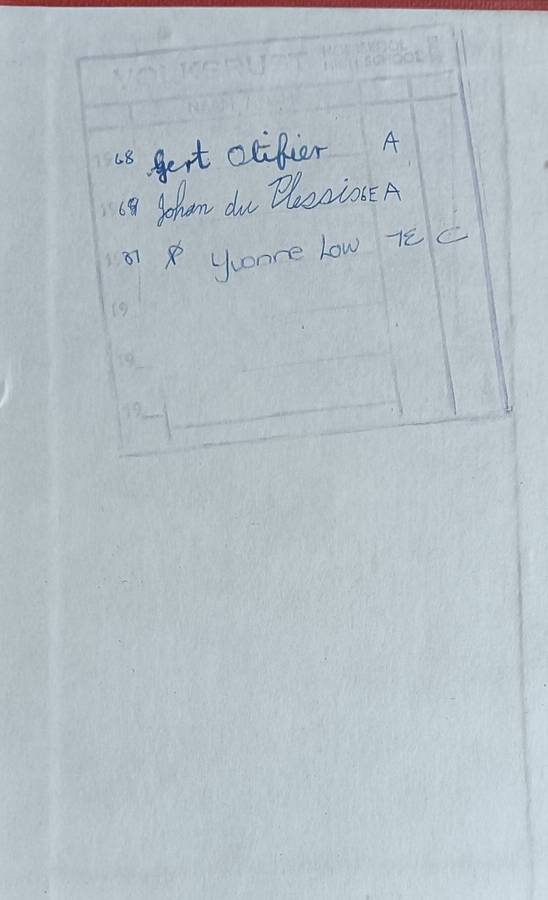 VOLKSRUST HOËRSKOOL
HIGH SCHOOL
1968 Gert Olifier A
1969 Johan du Plessis 6E A
Yvonne Low 7E C
19
19
19